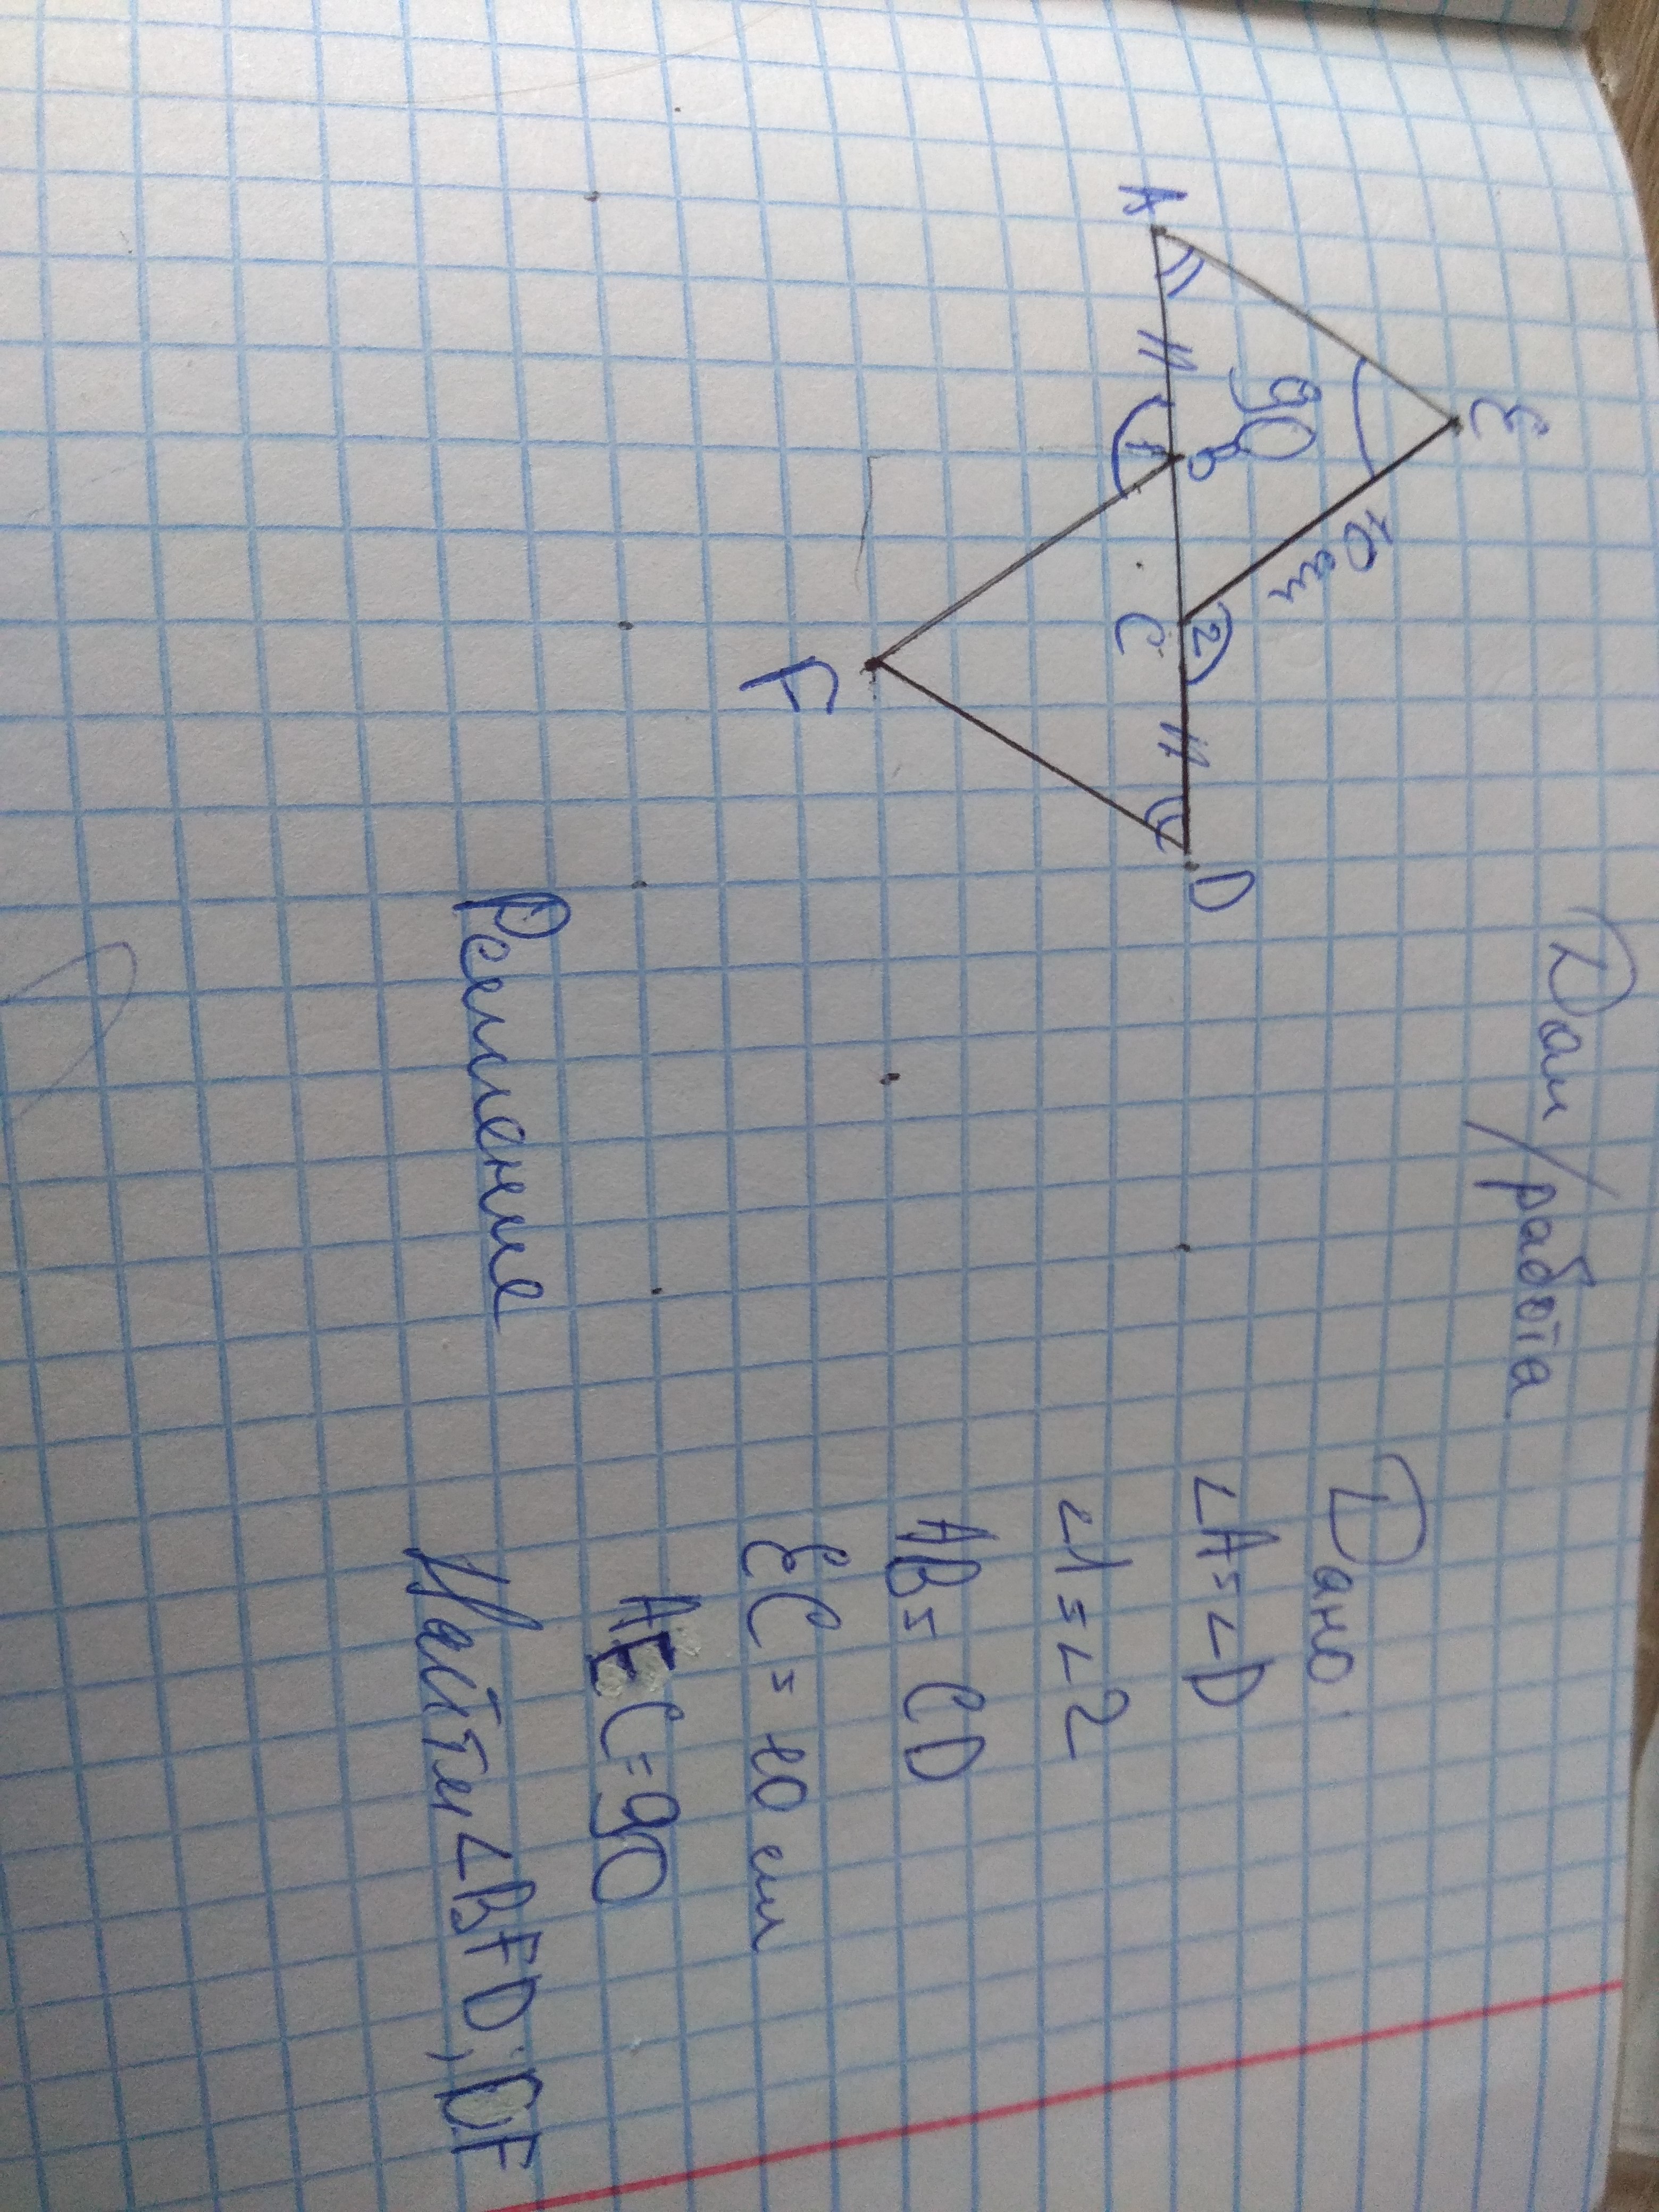 Дом/работа
Дано:
∠A=∠D
∠1=∠2
AB=CD
EC=10 см
AEC=90
Найти ∠BFD, DF
E
90
10 см
A
B
1
2
C
D
F
Решение